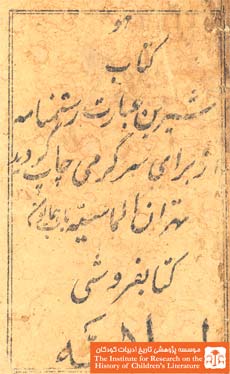 هو
کتاب
شیرین عبارت رستمنامه
برای سرگرمی چاپ گردید
تهران الماسیه
کتابفروشی
موسسه پژوهشی تاریخ ادبیات کودکان
The Institute for Research on the
History of Children's Literature